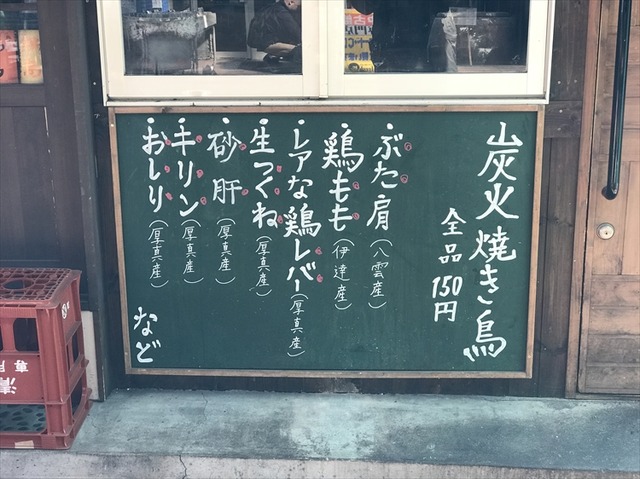 炭火焼き鳥
全品150円
ぶた肩（八雲産）
鶏もも（伊達産）
レアな鶏レバー（厚真産）
生つくね（厚真産）
砂肝（厚真産）
キリン（厚真産）
おしり（厚真産）
など